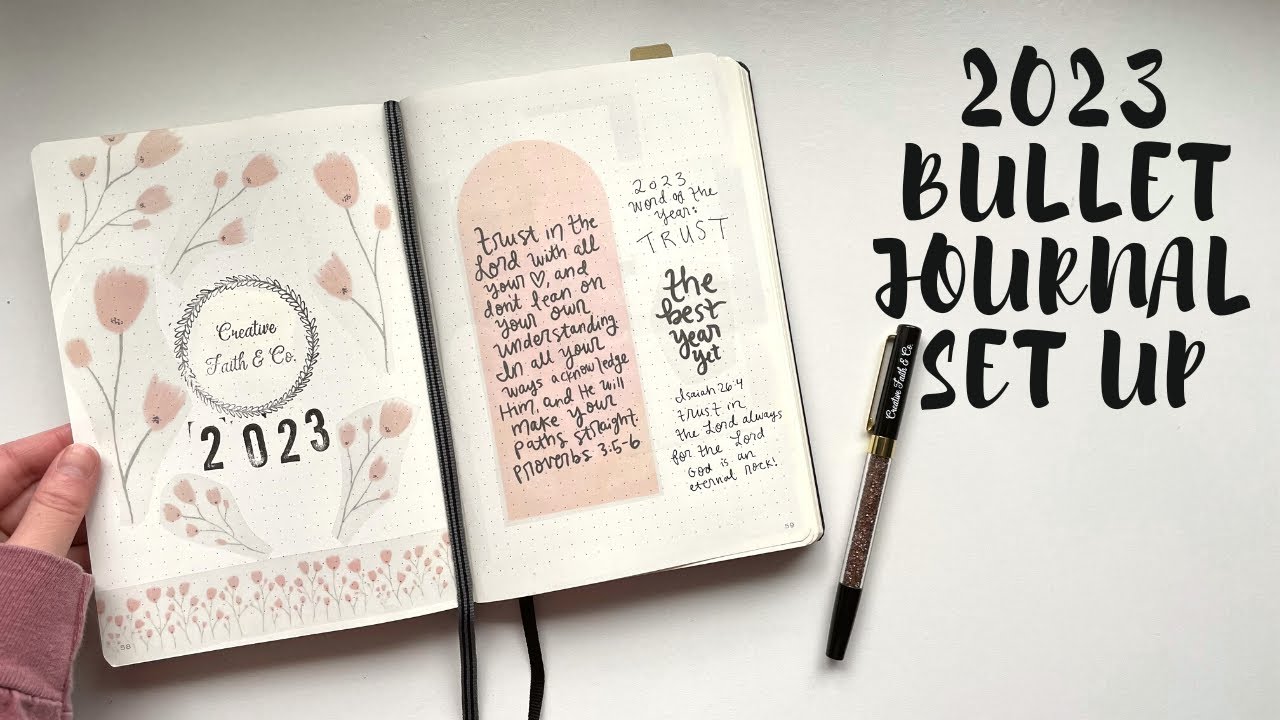 Creative
Faith & Co.
2023
58
trust in the
Lord with all
your ♡, and
don't lean on
your own
understanding.
In all your
ways acknowledge
Him, and He will
make your
paths straight.
Proverbs 3:5-6
2023
word of the
year:
TRUST
the
best
year
yet
Isaiah 26:4
trust in
the Lord always
for the Lord
God is an
eternal rock!
59
2023
BULLET
JOURNAL
SET UP
Creative Faith & Co.